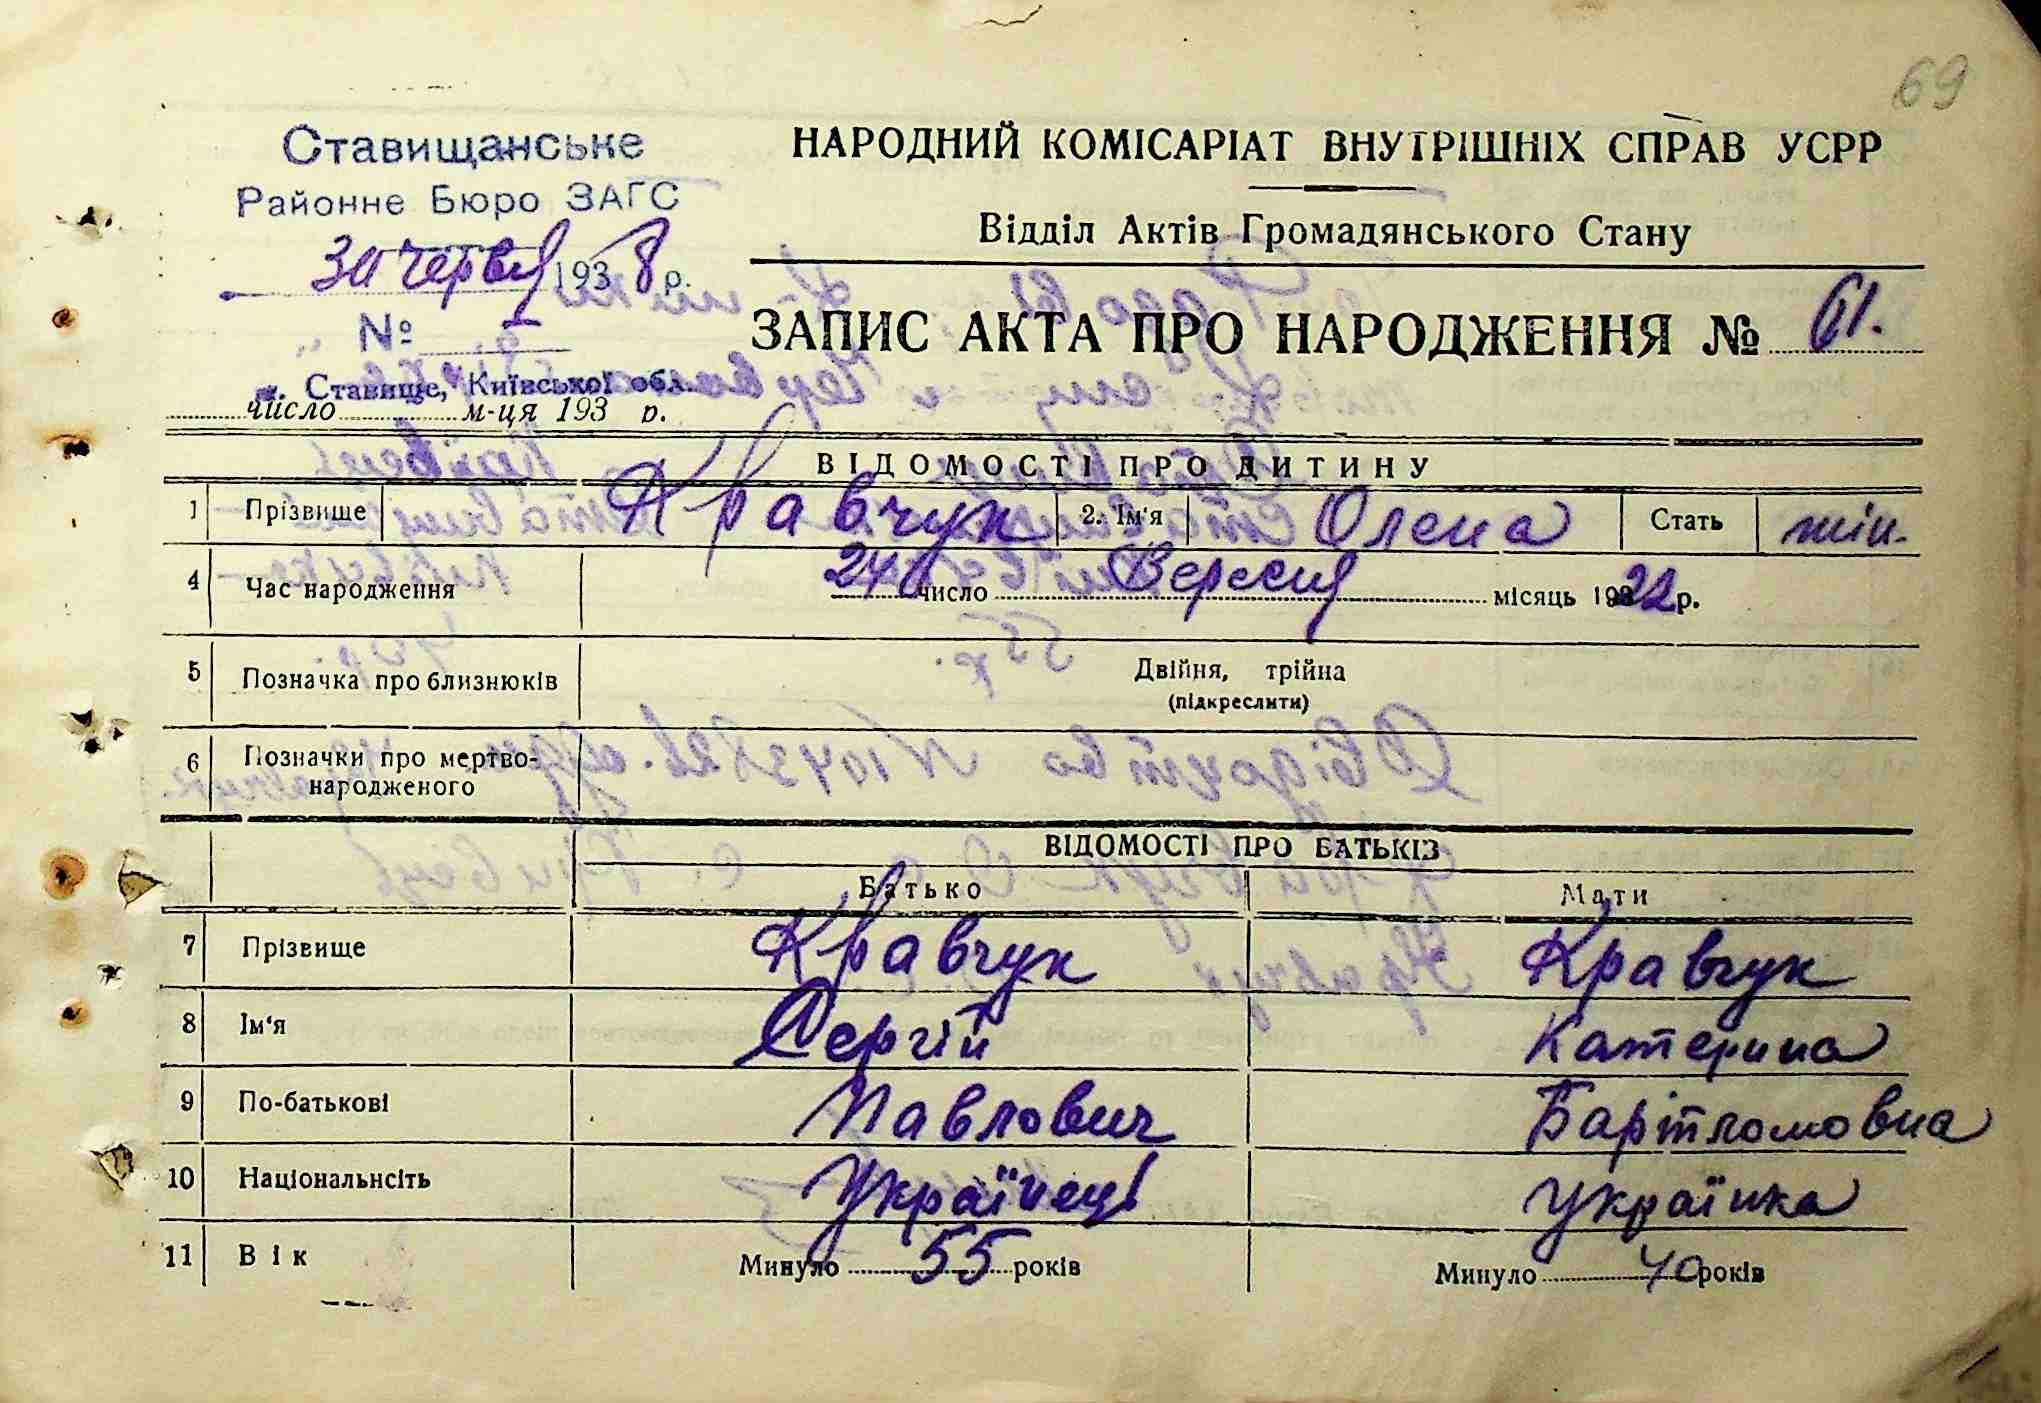 69
Ставищанське
Районне Бюро ЗАГС
30 червня 1938 р.
№
м. Ставище, Київської обл.
число м-ця 193 р.
НАРОДНИЙ КОМІСАРІАТ ВНУТРІШНІХ СПРАВ УСРР
Відділ Актів Громадянського Стану
ЗАПИС АКТА ПРО НАРОДЖЕННЯ № 61.
ВІДОМОСТІ ПРО ДИТИНУ
1 Прізвище Кравчук 2. Ім'я Олена Стать жін.
4 Час народження 24 число Вересня місяць 1922 р.
5 Позначка про близнюків Двійня, трійна
(підкреслити)
6 Позначки про мертво-
народженого
ВІДОМОСТІ ПРО БАТЬКІВ
Батько Мати
7 Прізвище Кравчук Кравчук
8 Ім'я Сергій Катерина
9 По-батькові Павлович Бартломовна
10 Національнсіть Українець Українка
11 Вік Минуло 55 років Минуло 40 років